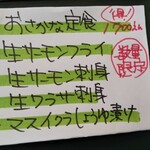 おさかな定食
1,700
生サーモンフライ
数量限定
生サーモン刺身
生ワラサ刺身
マスイクラしょうゆ漬け